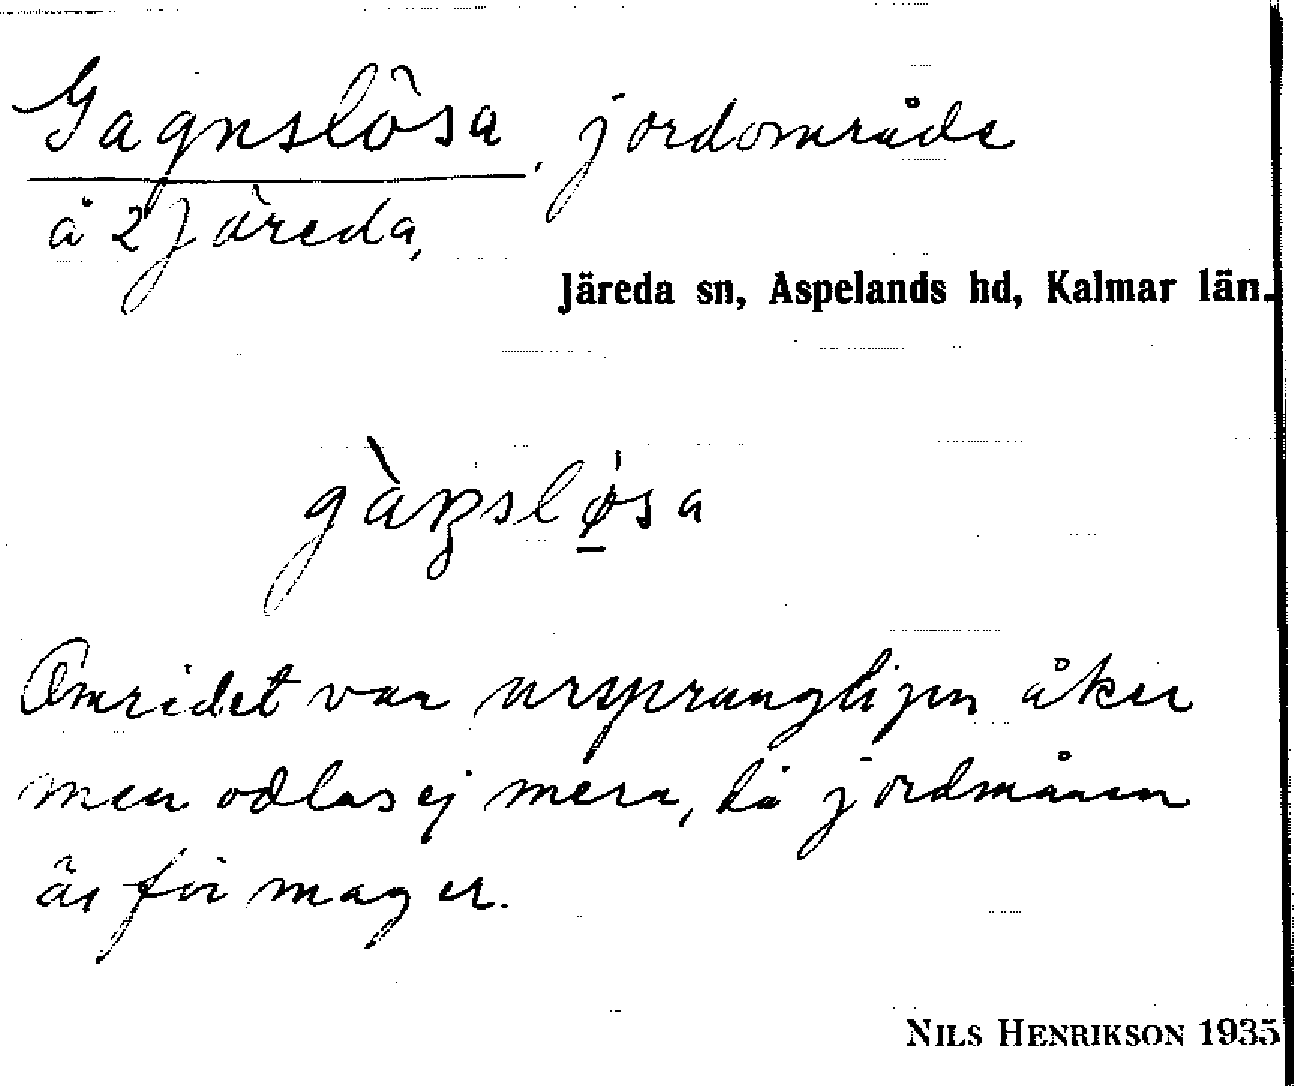 Gagnslösa, jordområde
å 2 Järeda,
Järeda sn, Aspelands hd, Kalmar län.
gàŋslǿ̱sa
Området var ursprungligen åker
men odlas ej mera, då jordmånen
är för mager.
NILS HENRIKSON 1935